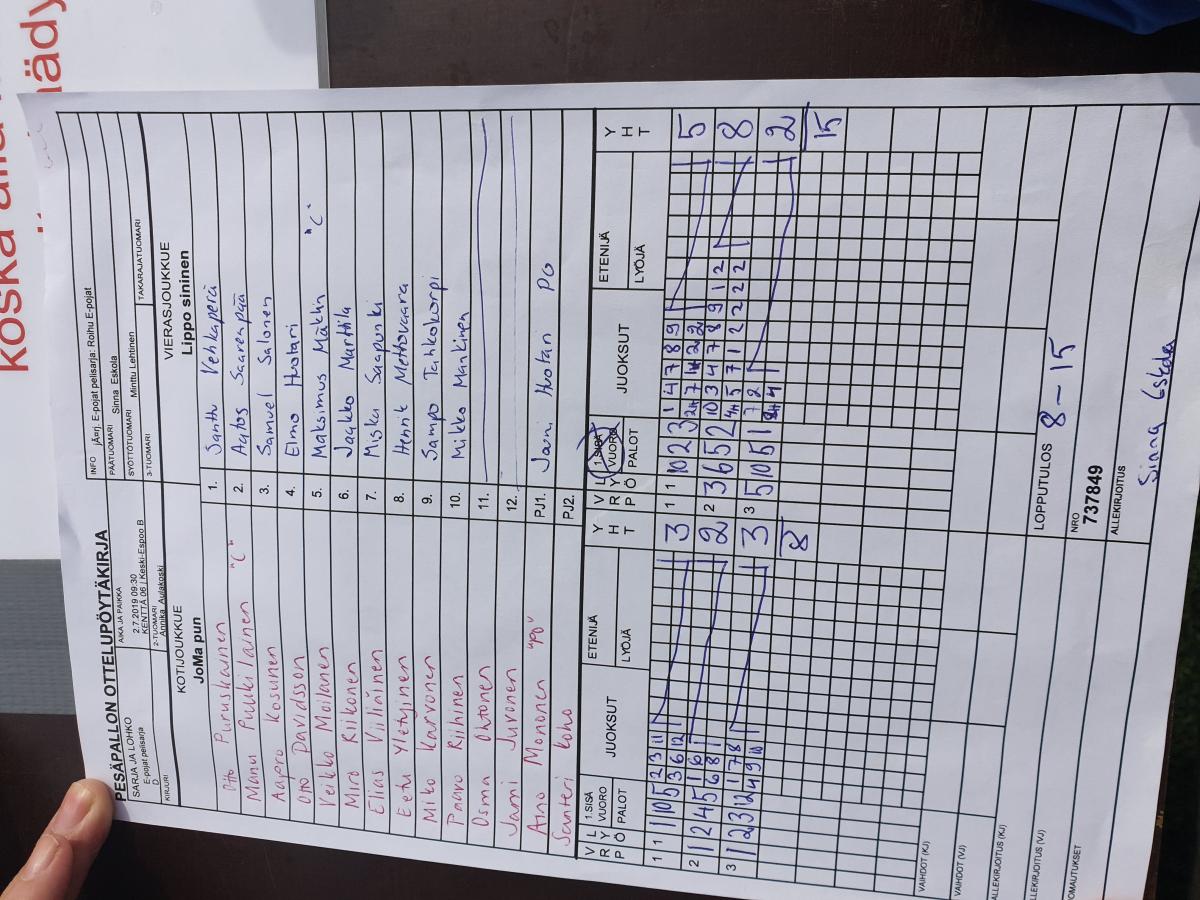 koska alla
PESÄPALLON OTTELUPÖYTÄKIRJA
SARJA JA LOHKO
E-pojat pelisarja
D
AIKA JA PAIKKA
2.7.2019 09:30
KENTTÄ 06 | Keski-Espoo B
INFO E-pojat pelisarja: Roihu E-pojat
PÄÄTUOMARI Sinna Eskola
KIRJURI
2-TUOMARI
Annika Aulakoski
SYÖTTÖTUOMARI Minttu Lehtinen
3-TUOMARI
TAKARAJATUOMARI
KOTIJOUKKUE
JoMa pun
VIERASJOUKKUE
Lippo sininen
Otto Puruskainen 1. Santtu Vehkaperä
Manu Pulkkilainen "C" 2. Aatos Saarenpää
Aapro Kosunen 3. Samuel Salonen
Otto Davidsson 4. Elmo Huotari
Veikko Moilanen 5. Maksimus Mäkin "C"
Miro Riikonen 6. Jaakko Marttila
Elias Viiliäinen 7. Miska Saapunki
Eetu Yletyinen 8. Henrik Mettovaara
Miko Karvonen 9. Sampo Tahkokorpi
Paavo Riihinen 10. Mikko Mankinen
Osma Ohtonen 11.
Jami Juvonen 12.
Aino Mononen "ypo" PJ1. Jaani Huotari PG
Santeri Koho PJ2.
V R P L Y Ö 1.SISÄ VUORO PALOT JUOKSUT ETENIJÄ LYÖJÄ Y H T
V R P L Y Ö 1.SISÄ VUORO PALOT JUOKSUT ETENIJÄ LYÖJÄ Y H T
1 1 1 10 5 2 3 11 3
3 6 12
1 1 10 2 3 1 4 7 8 9 5
2 1 2 4 5 1 6 1 2
6 8 1
2 3 6 5 2 10 3 4 7 8 9 1 2 8
3 1 2 3 12 1 7 8 3
4 9 10
3 5 10 5 1 7 2 2
8
15
VAIHDOT (KJ)
VAIHDOT (VJ)
ALLEKIRJOITUS (KJ)
LOPPUTULOS 8-15
ALLEKIRJOITUS (VJ)
NRO
737849
ALLEKIRJOITUS
Sinna Eskola